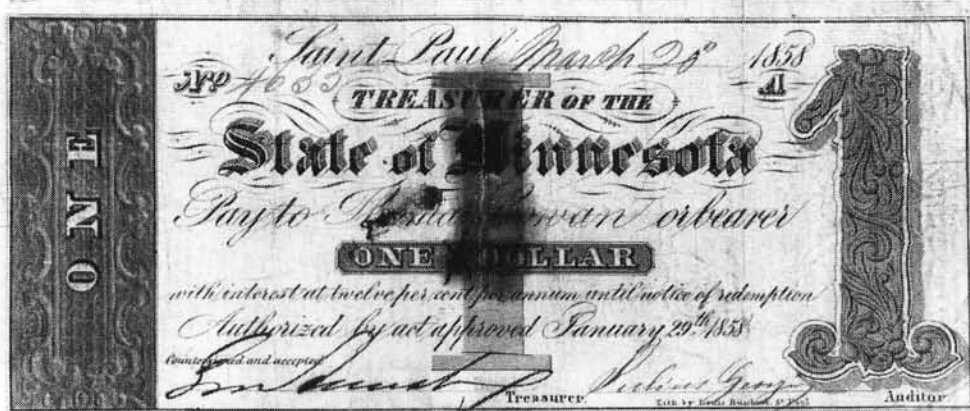 ONE
Saint Paul March 20th 1858
No 4653 A
TREASURER OF THE
State of Minnesota
1
Pay to or bearer
ONE DOLLAR
with interest at twelve per cent per annum until notice of redemption
Authorized by act approved January 29th 1858
Countersigned and accepted
Treasurer
Lith by Louis Buechner St Paul
Auditor